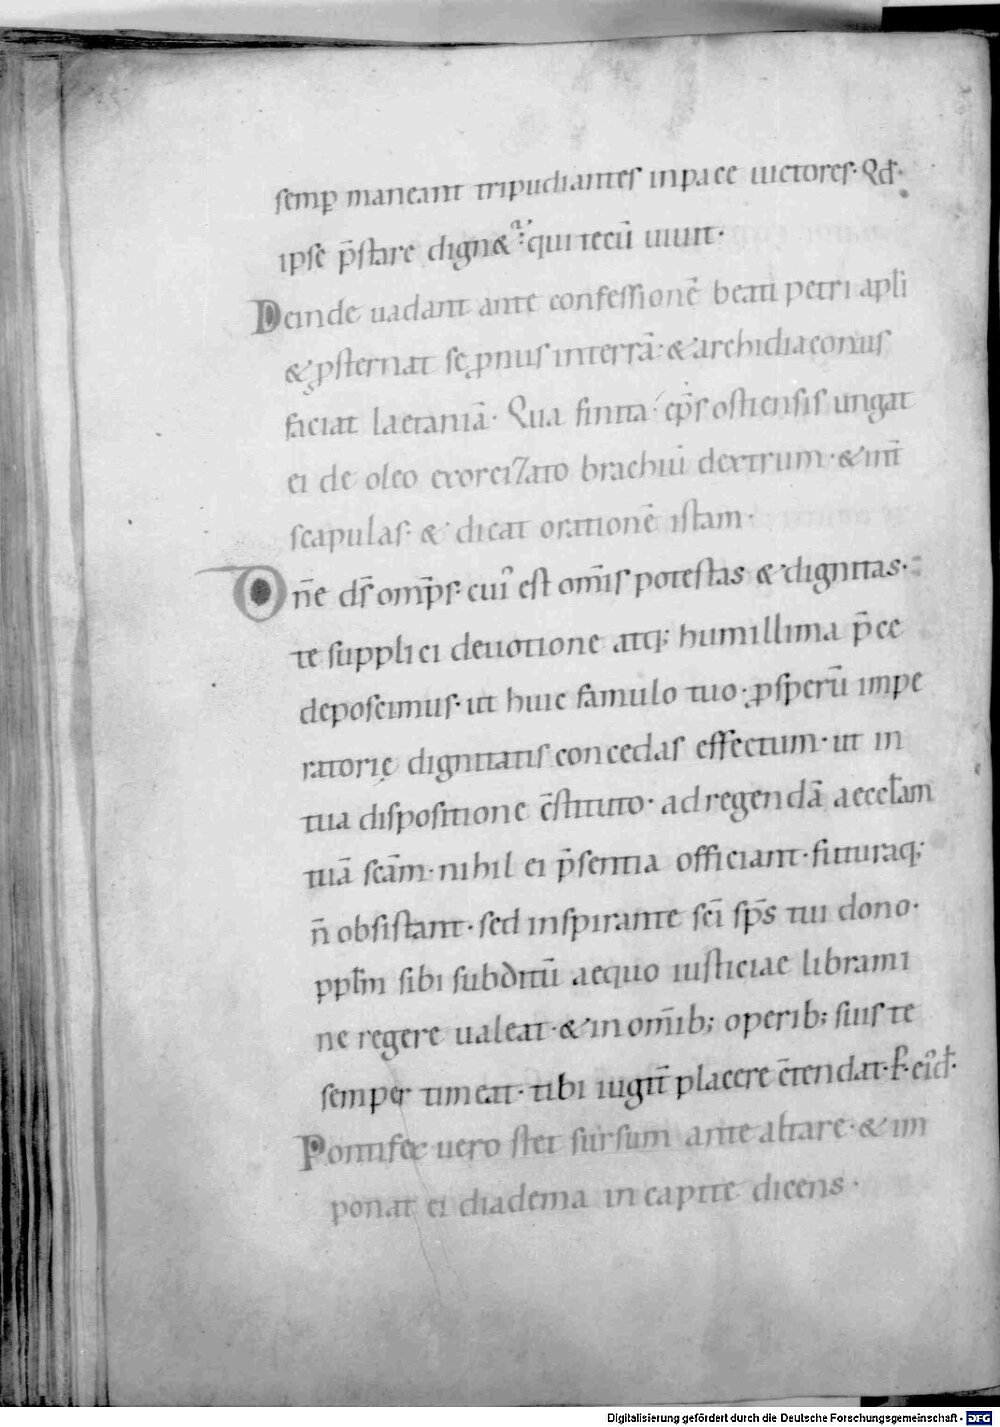 semꝑ maneant tripudiantes inpace uictores· Qd̄·
ipse p̄stare digne&ᷓ· qui tecū uiuit·
Deinde uadant ante confessionē beati petri apl̄i
& ꝓsternat se ꝓnus interrā· & archidiaconus
faciat laetaniā· Qua finita· ep̄s ostiensis ungat
ei de oleo exorcizato brachiū dextrum· & int̄
scapulas· & dicat orationē istam·
Dn̄e ds̄ omp̄s· cui' est om̄is potestas & dignitas·
te supplici deuotione atq; humillima p̄ce
deposcimus· ut huic famulo tuo· ꝓsperū impe
ratorię dignitatis concedas effectum· ut in
tua dispositione c̄stituto· ad regendā aeccl̄am
tuā sc̄am· nihil ei p̄sentia officiant· futuraq;
n̄ obsistant· sed inspirante sc̄i sp̄s tui dono·
ppl̄m sibi subditū aequo iusticiae librami
ne regere ualeat· & in om̄ib; operib; suis te
semper timeat· tibi iugit̄ placere c̄tendat· P· ei'd̄·
Pontifex uero stet sursum ante altare· & im
ponat ei diadema in capite dicens·
Digitalisierung gefördert durch die Deutsche Forschungsgemeinschaft - DFG